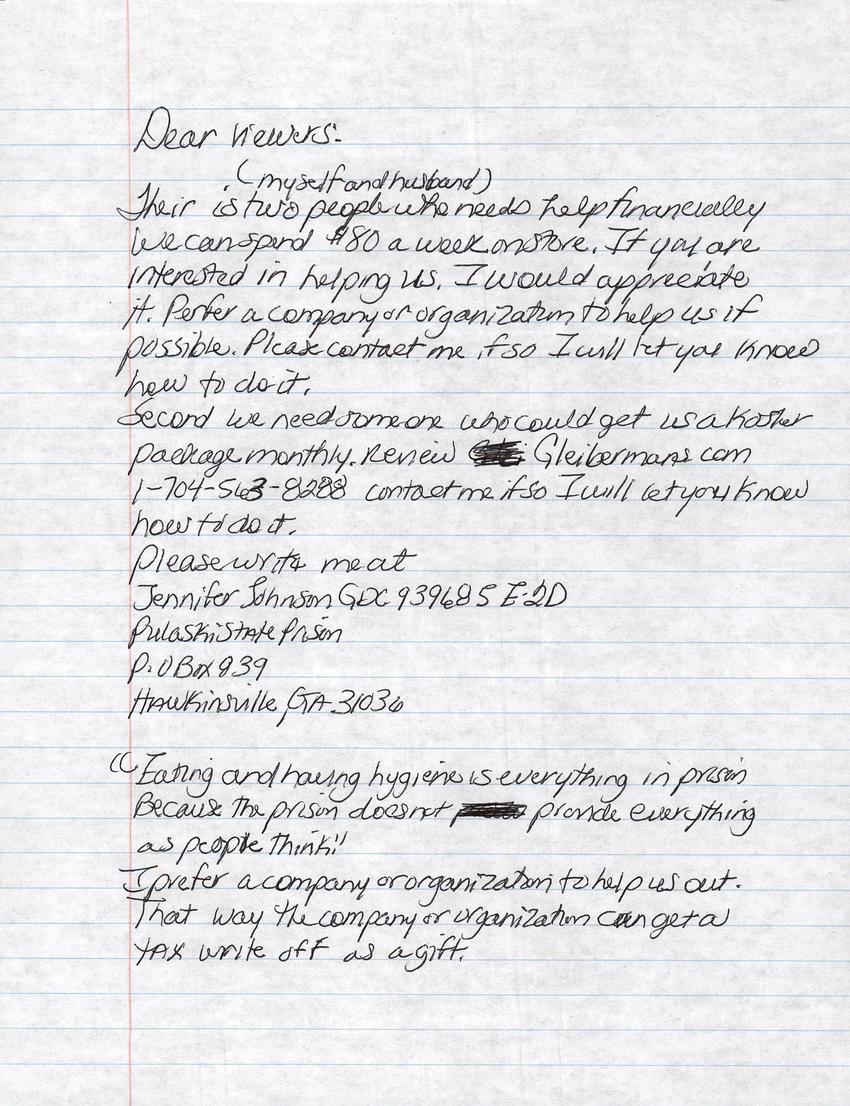 Dear Viewers:
(myself and husband)
Their is two people who needs help financially
We can spend $80 a week on store. If you are
interested in helping us. I would appreciate
it. Perfer a company or organization to help us if
possible. Please contact me if so I will let you know
how to do it.
Second we need someone who could get us a Kosher
package monthly. Review Gleibermans com
1-704-563-8288 contact me if so I will let you know
how to do it.
Please write me at
Jennifer Johnson GDC 939685 E-2D
Pulaski State Prison
P.O Box 839
Hawkinsville, GA 31036
"Eating and having hygiene is everything in prison
Because the prison does not provide everything
as people think!!
I prefer a company or organization to help us out.
That way the company or organization can get a
tax write off as a gift.